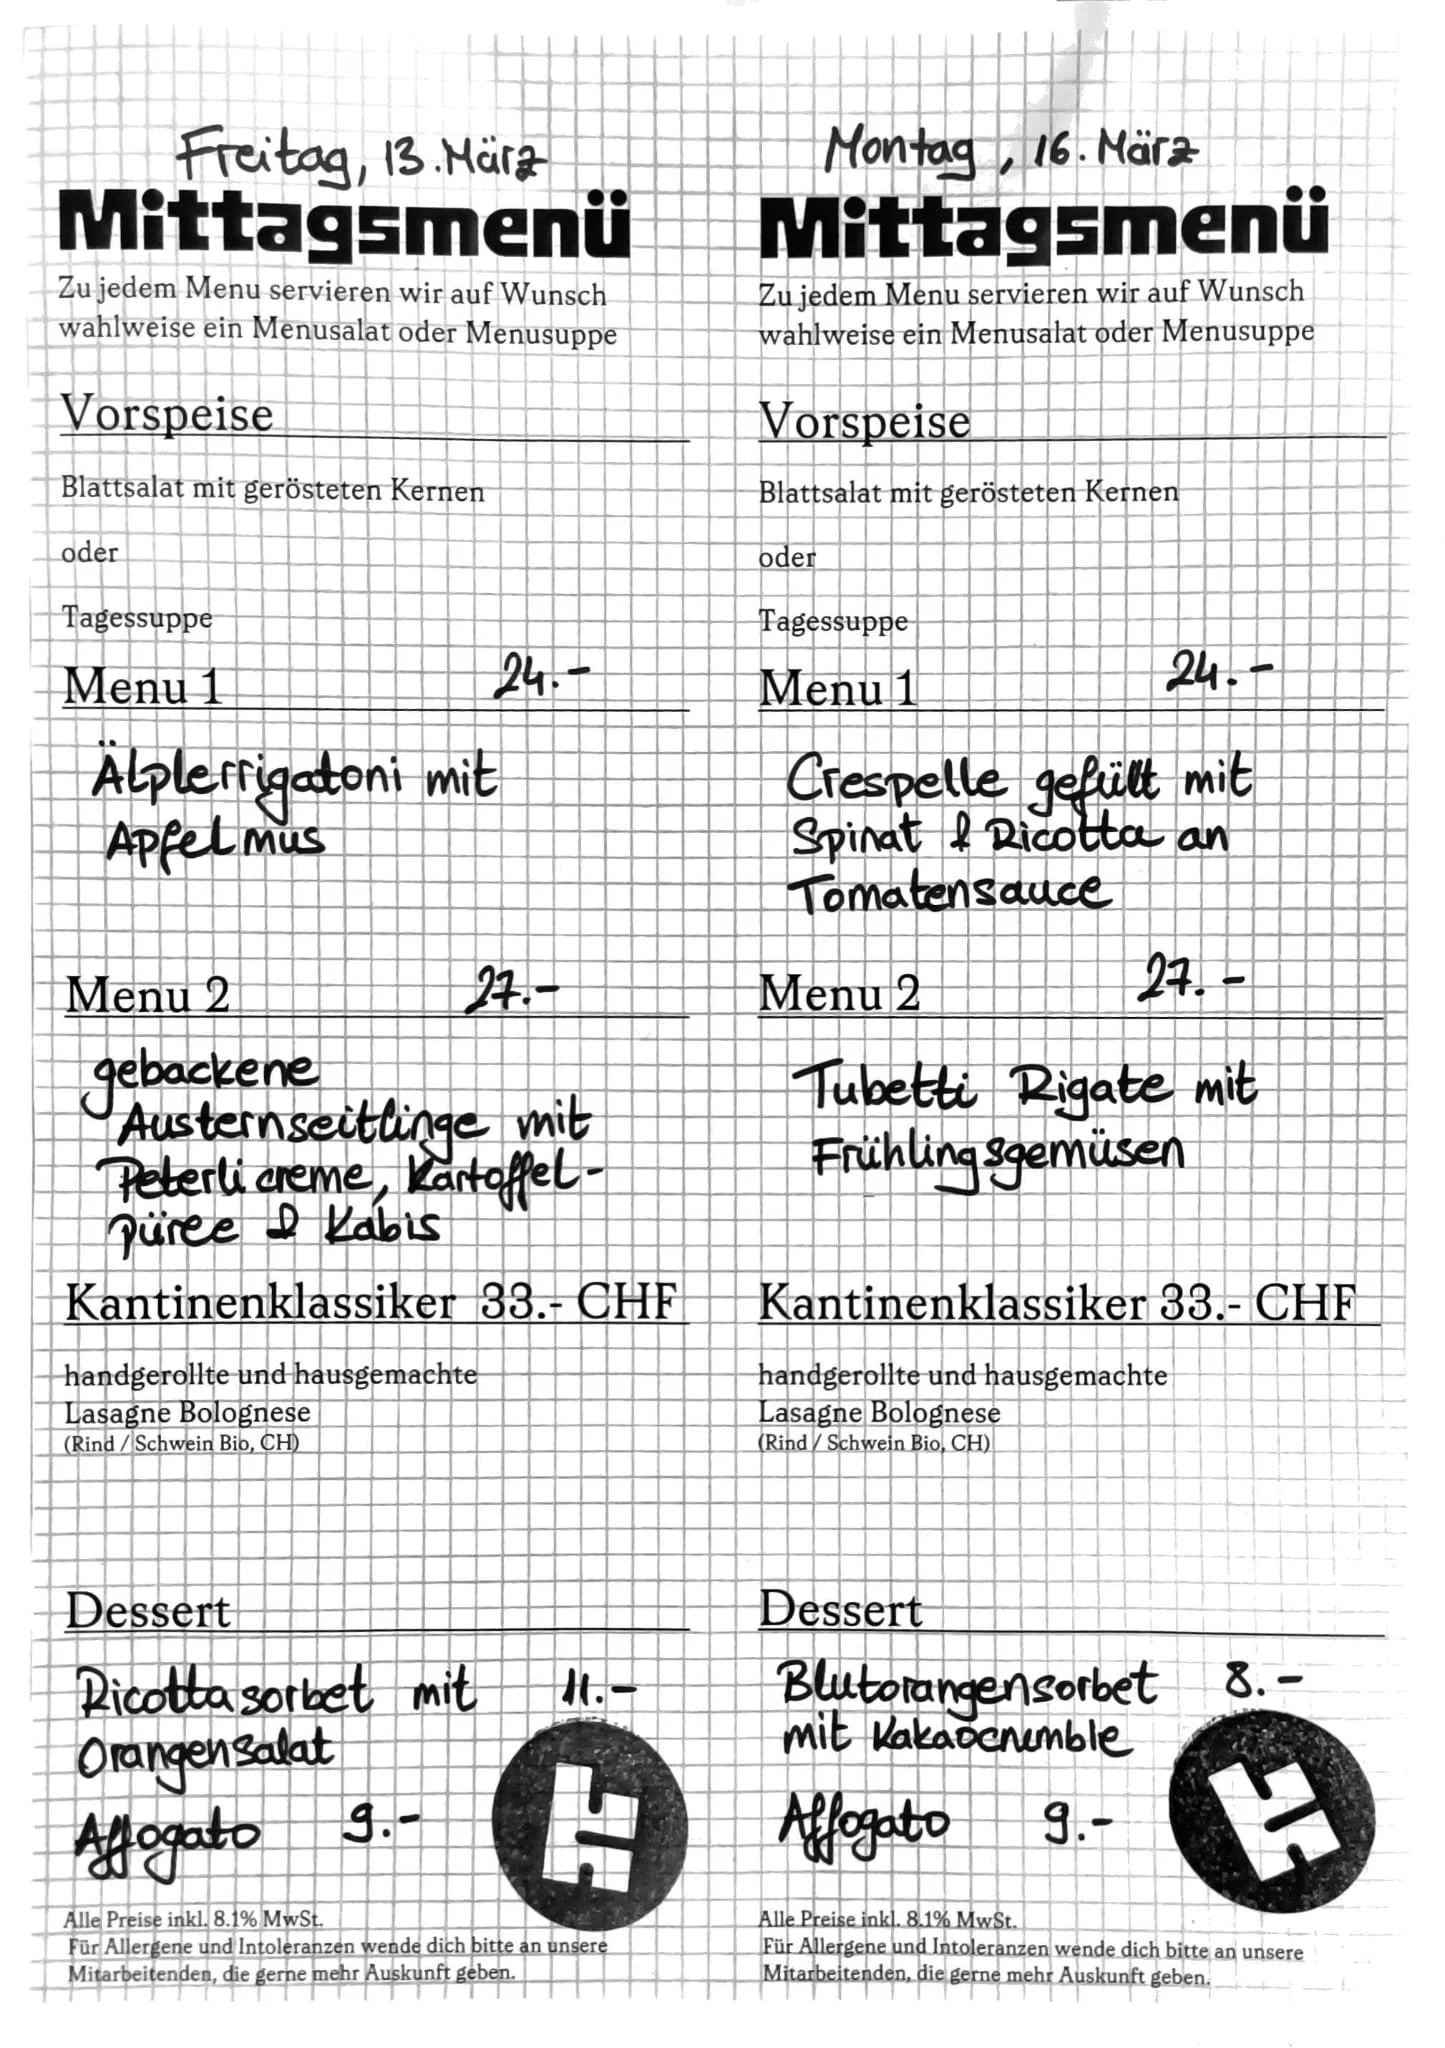 Freitag, 13. März
Mittagsmenü
Zu jedem Menu servieren wir auf Wunsch
wahlweise ein Menusalat oder Menusuppe
Vorspeise
Blattsalat mit gerösteten Kernen
oder
Tagessuppe
Menu 1 24.-
Älplerrigatoni mit
Apfelmus
Menu 2 27.-
gebackene
Austernseitlinge mit
Peterlicreme, Kartoffel-
püree & Kabis
Kantinenklassiker 33.- CHF
handgerollte und hausgemachte
Lasagne Bolognese
(Rind / Schwein Bio, CH)
Dessert
Ricottasorbet mit 11.-
Orangensalat
Affogato 9.-
Alle Preise inkl. 8.1% MwSt.
Für Allergene und Intoleranzen wende dich bitte an unsere
Mitarbeitenden, die gerne mehr Auskunft geben.
Montag, 16. März
Mittagsmenü
Zu jedem Menu servieren wir auf Wunsch
wahlweise ein Menusalat oder Menusuppe
Vorspeise
Blattsalat mit gerösteten Kernen
oder
Tagessuppe
Menu 1 24.-
Crespelle gefüllt mit
Spinat & Ricotta an
Tomatensauce
Menu 2 27.-
Tubetti Rigate mit
Frühlingsgemüsen
Kantinenklassiker 33.- CHF
handgerollte und hausgemachte
Lasagne Bolognese
(Rind / Schwein Bio, CH)
Dessert
Blutorangensorbet 8.-
mit Kakaocrumble
Affogato 9.-
Alle Preise inkl. 8.1% MwSt.
Für Allergene und Intoleranzen wende dich bitte an unsere
Mitarbeitenden, die gerne mehr Auskunft geben.